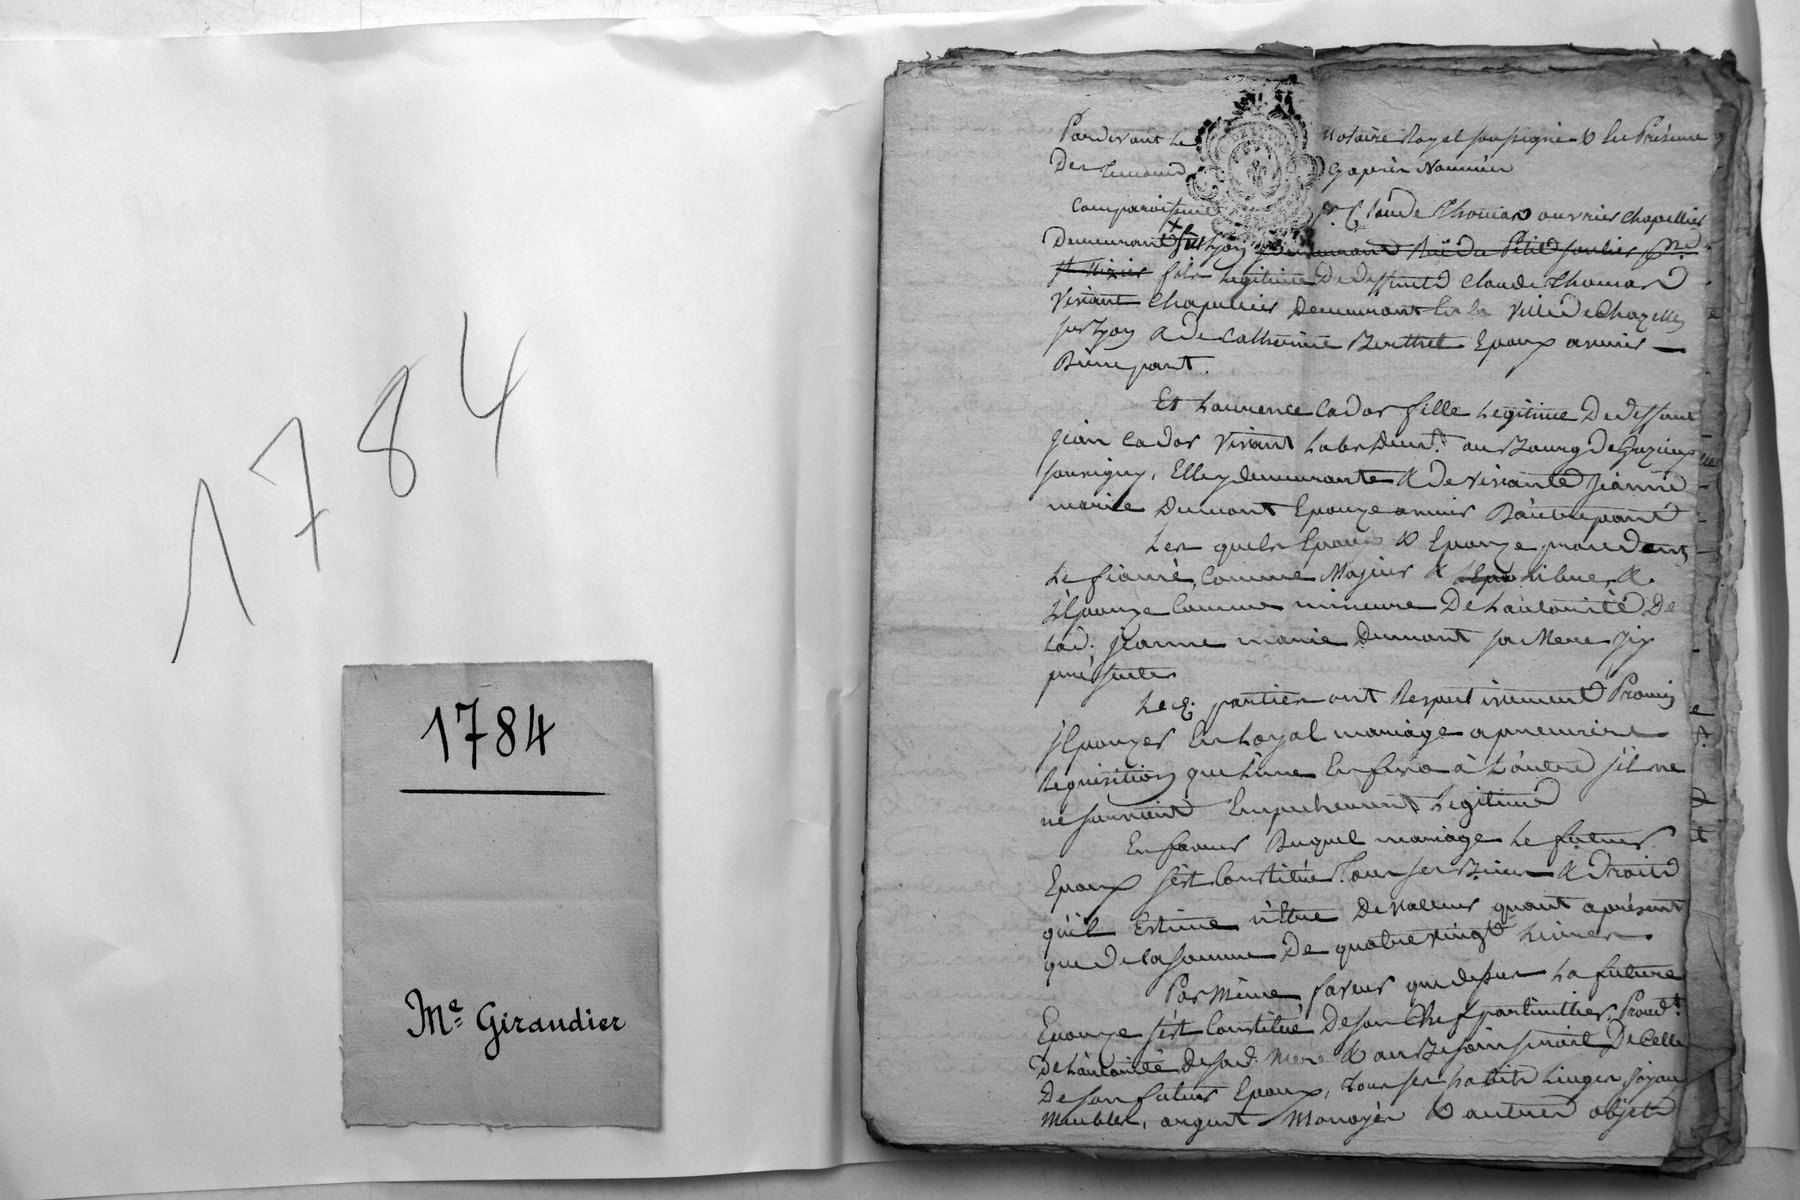 1784
1784
Me Giraudier
Pardevant Le Notaire Royal soussigné & En Présence
Des Temoins Cyaprès Nommés
Comparoissent Sr. Claude Thomas ouvrier chapellier
Demeurant Lyon demeurant Rue du Petit soulier
St Nizier fils Legitime De deffunt Claude Thomas
Vivant Chapellier Demeurant En La Ville de Chazelles
sur Lyon & de Catherine Berthet Epoux avenir
D'une part.
Et Laurence Cador fille Legitime De deffunt
Jean Cador Vivant Lab. au Bourg de
Souvigny, Elle y demeurante & de vivante Jeanne
marie Dumont Epouze avenir D'autre part
Les quels Epoux & Epouze procedent
Le fiancé, Comme Majeur & Libre, &
L'Epouze Comme mineure De L'autorité De
Lad. Jeanne marie Dumont sa Mere Icy
présente
Led. parties ont Respectivement Promis
s'Epouzer En Loyal mariage a premiere
Requisition que L'une En fera à L'autre s'il ne
ne survient Empechement Legitime
En faveur Duquel mariage Le futur
Epoux s'est Constitué Tous ses Biens & Droits
qu'il Estime n'Etre De valeur quant aprésent
que de la somme De quatre vingt Livres.
Par Même faveur que dessus La future
Epouze s'est Constitué De son Chef particullier, Proced.t
De L'autorité De sad. Mere & au Besoin seroit De Celle
De son futur Epoux, Tous ses habits Linges Joyaux
Meubles, argent Monoyés & autres objets